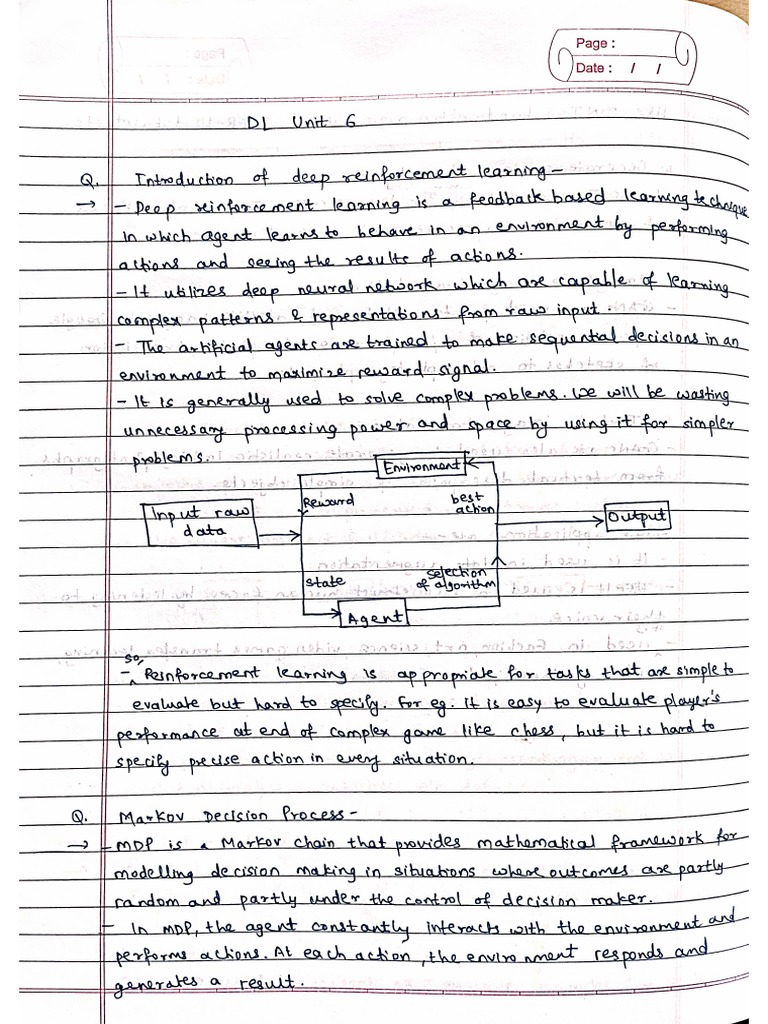 Page :
Date : / /
DL Unit 6
Q. Introduction of deep reinforcement learning -
→ - Deep reinforcement learning is a feedback based learning technique
in which agent learns to behave in an environment by performing
actions and seeing the results of actions.
- It utilizes deep neural network which are capable of learning
complex patterns & representations from raw input.
- The artificial agents are trained to make sequential decisions in an
environment to maximize reward signal.
- It is generally used to solve complex problems. We will be wasting
unnecessary processing power and space by using it for simpler
problems.
Environment
Reward
best
action
Input raw
data
Output
State
selection
of algorithm
Agent
so,
- ^ Reinforcement learning is appropriate for tasks that are simple to
evaluate but hard to specify. For eg. it is easy to evaluate player's
performance at end of complex game like chess, but it is hard to
specify precise action in every situation.
Q. Markov Decision Process -
→ - MDP is a Markov chain that provides mathematical framework for
modelling decision making in situations where outcomes are partly
random and partly under the control of decision maker.
- In MDP, the agent constantly interacts with the environment and
performs actions. At each action, the environment responds and
generates a result.